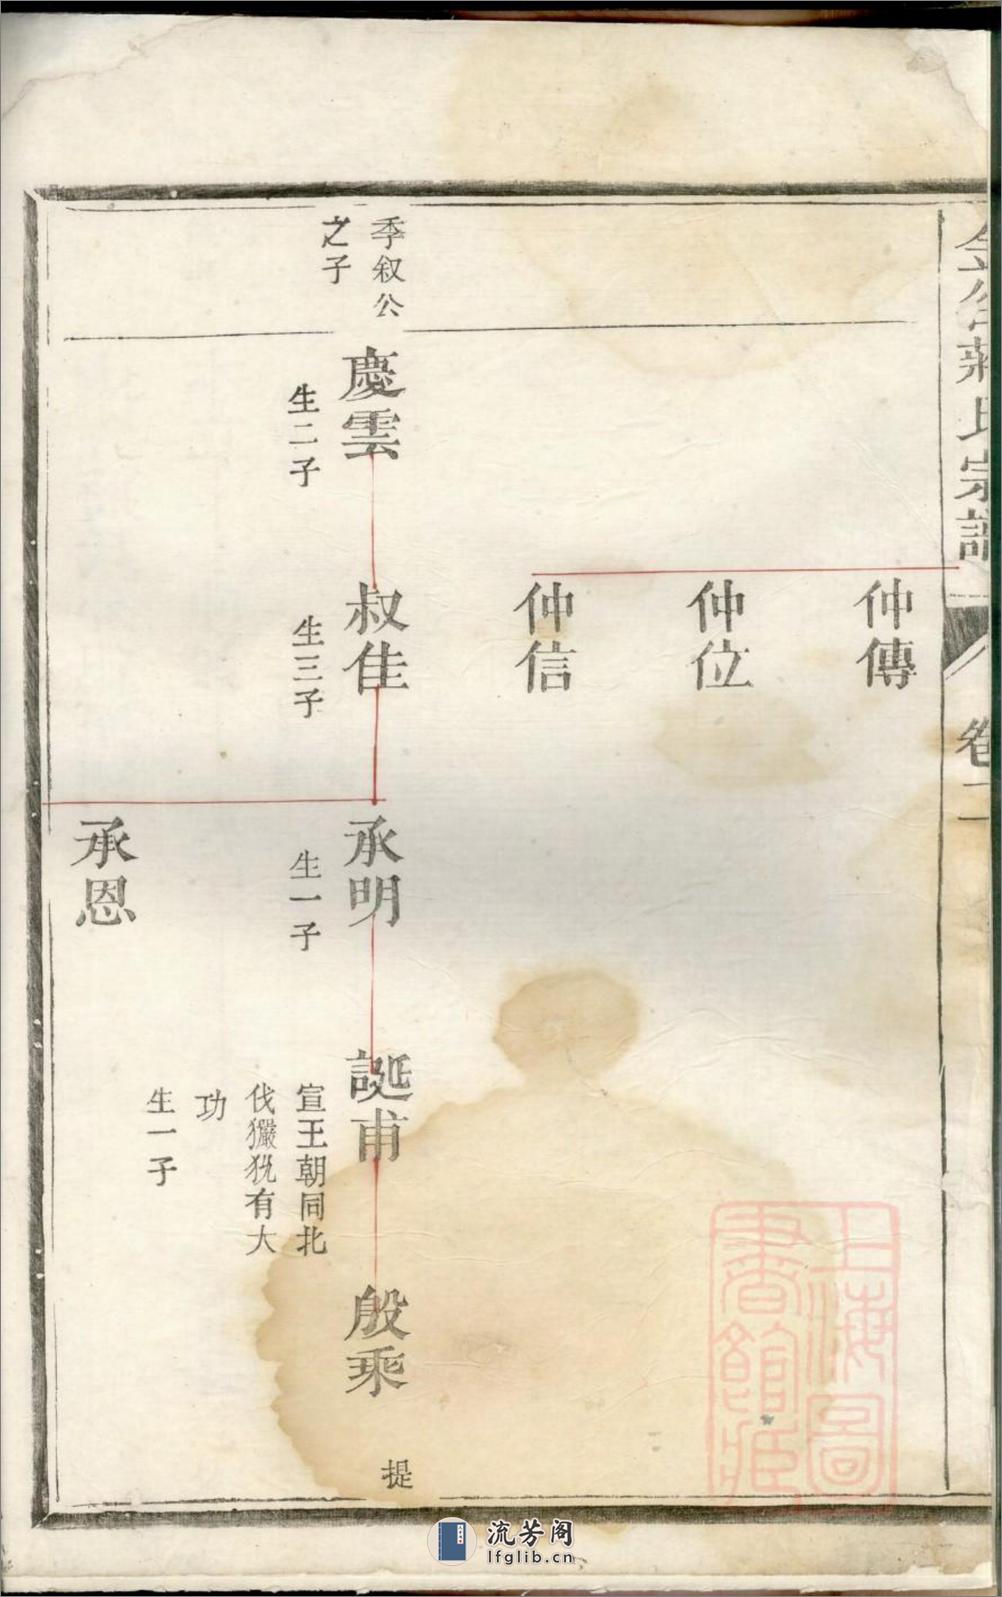 蔣氏宗譜
卷二
仲傳
仲位
仲信
季叙公
之子
慶雲
生二子
叔佳
生三子
承明
生一子
誕甫
宣王朝同北
伐玁狁有大
功
生一子
殷乘
提
承恩
上海圖
書館藏
流芳阁
lfglib.cn